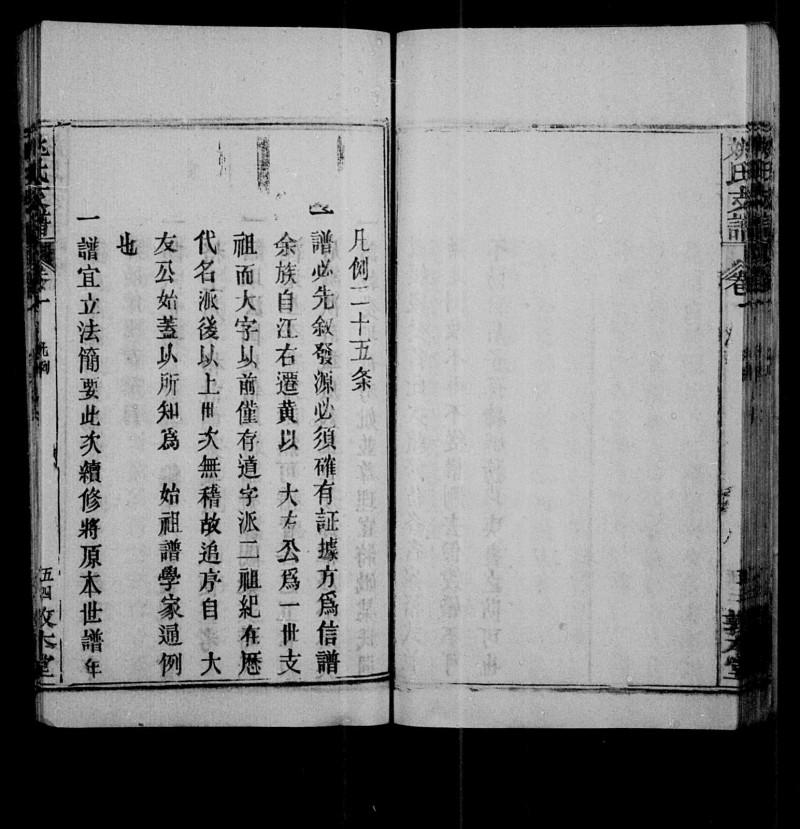 姚氏支譜
卷
凡例二十五条
一譜必先敘發源必須確有証據方爲信譜
余族自江右遷黃以 大友公爲一世支
祖而大字以前僅有道字派二祖紀在歷
代名派後以上世次無稽故追序自 大
友公始蓋以所知爲 始祖譜學家通例
也
一譜宜立法簡要此次續修將原本世譜年
凡例
五四
敦本堂